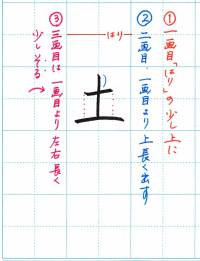 ①一画目「はり」の少し上に
②二画目、一画目より上長く出す
はり
土
③三画目は一画目より左右長く
少しそる